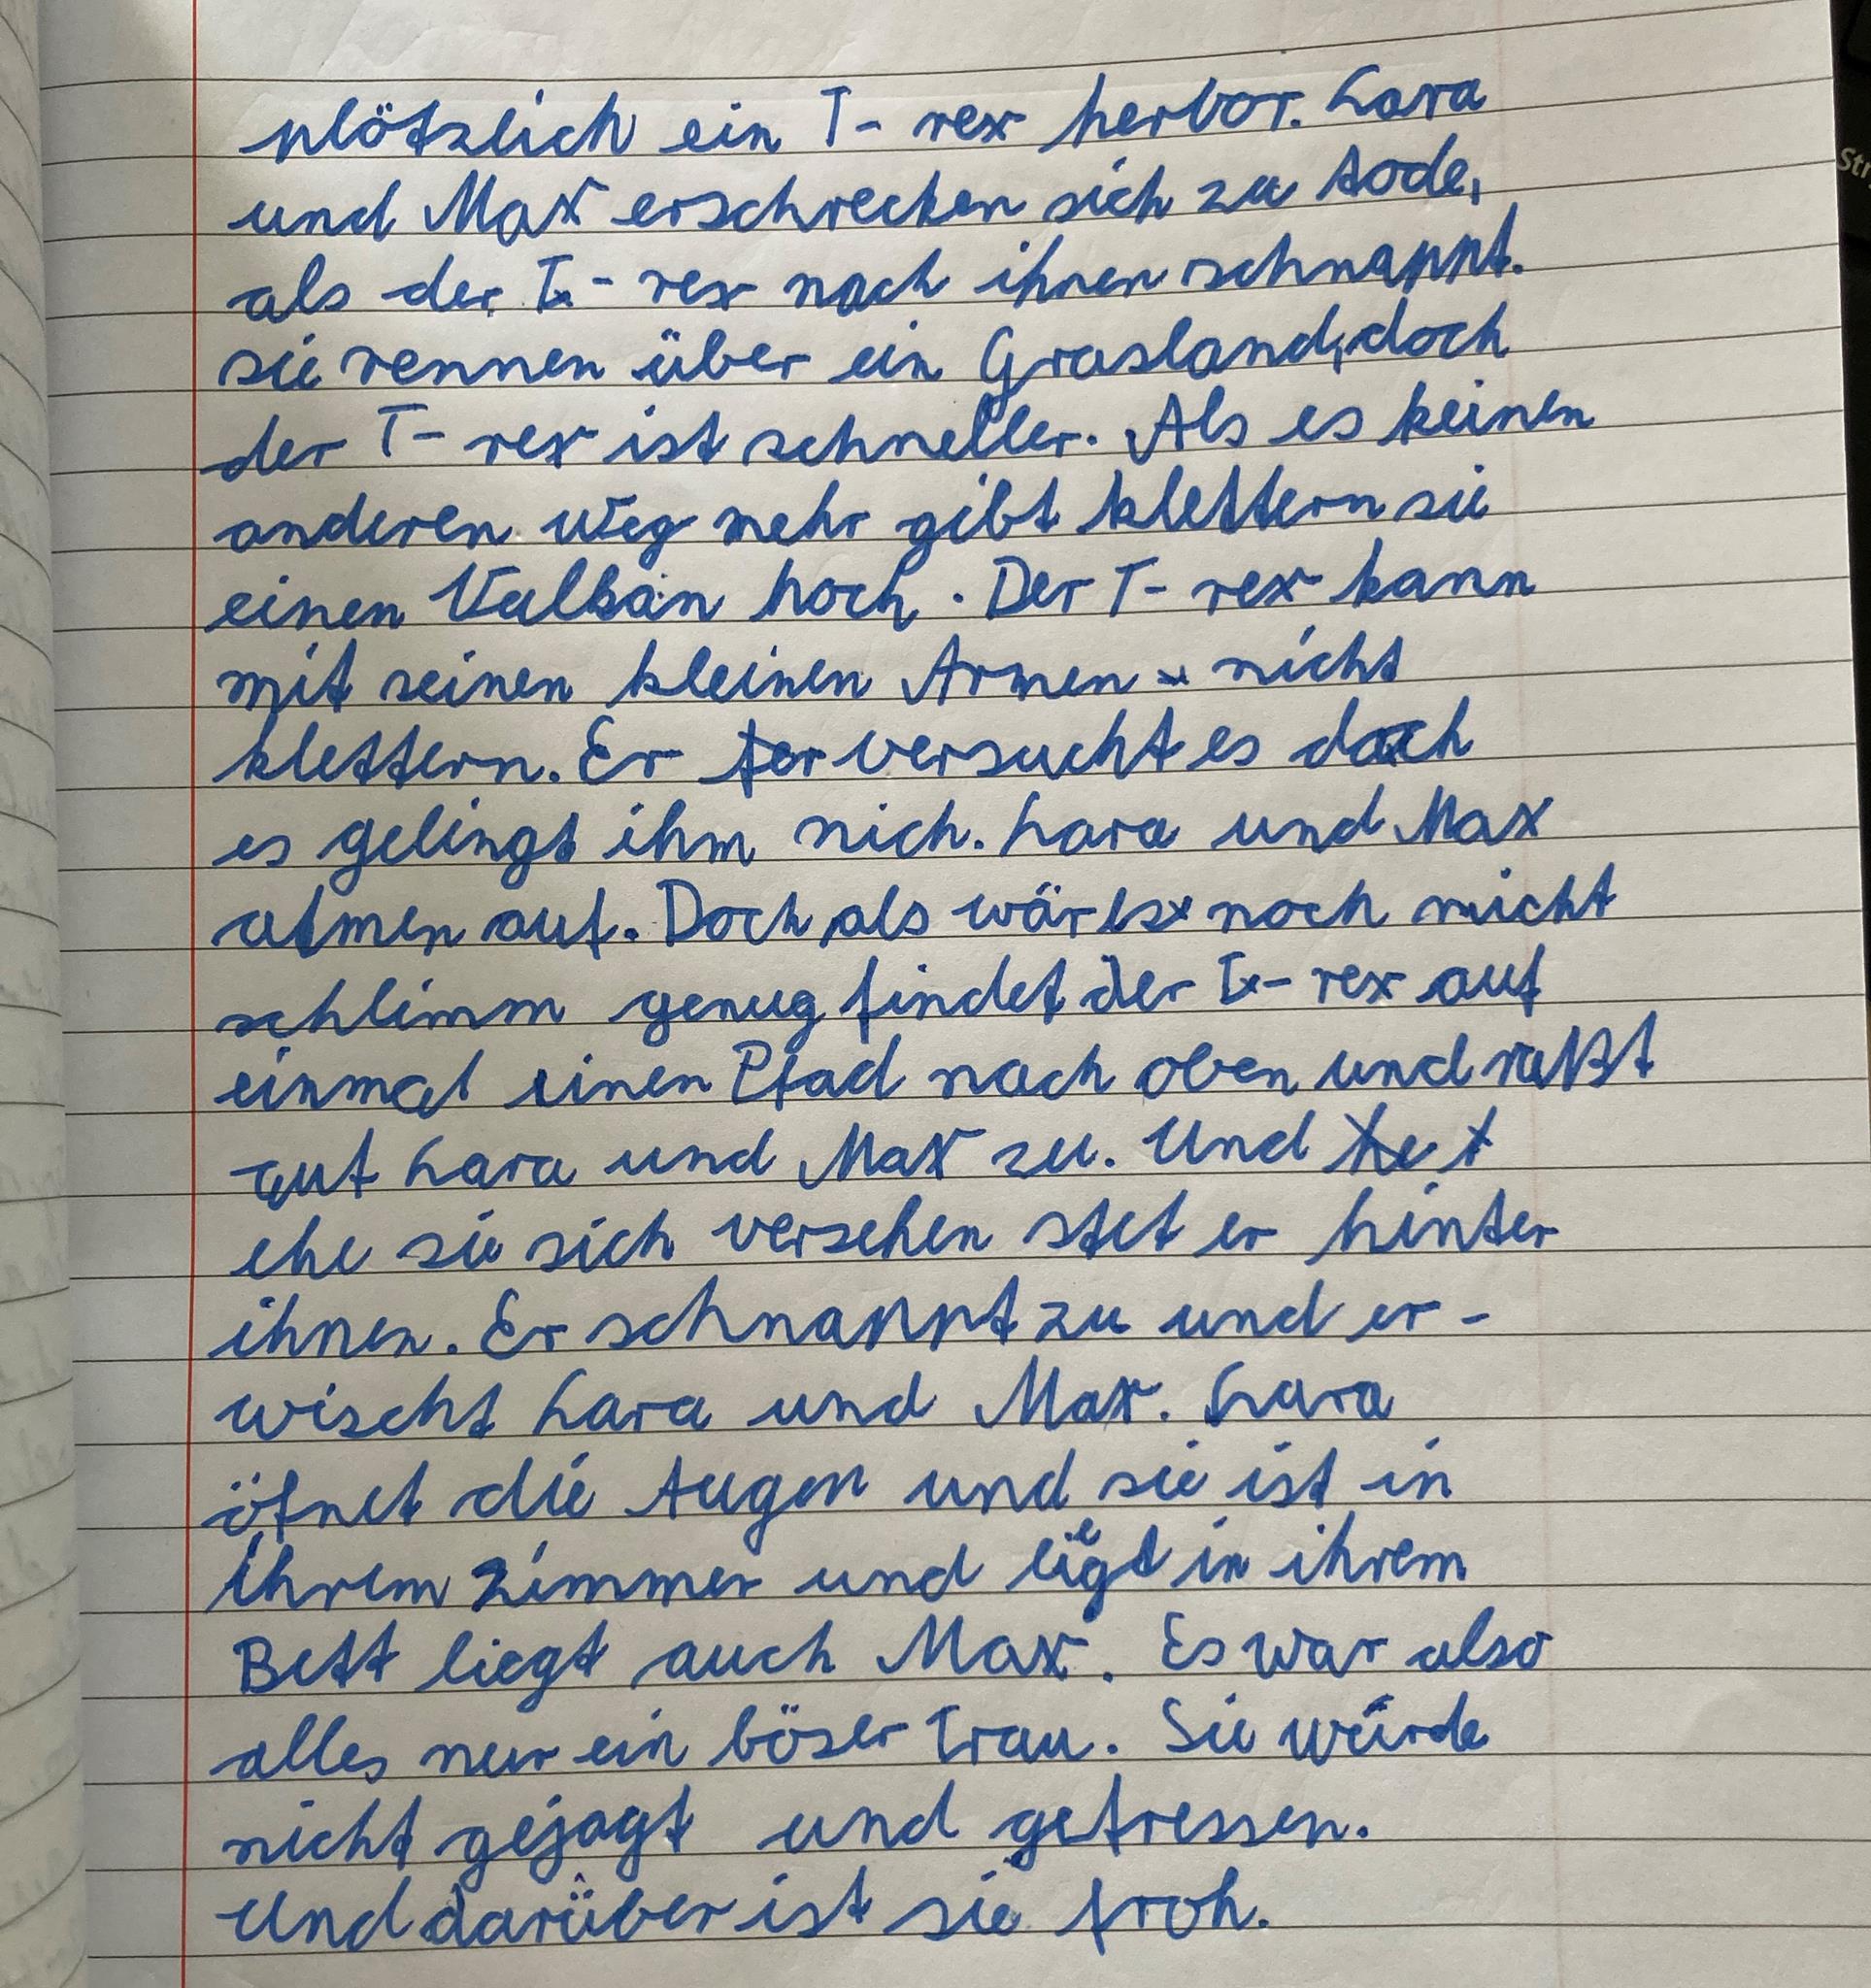 plötzlich ein T- rex hervor. Lara
und Max erschrecken sich zu tode,
als der T- rex nach ihnen schnappt.
sie rennen über ein Grasland, doch
der T- rex ist schneller. Als es keinen
anderen Weg mehr gibt klettern sie
einen Vulkan hoch. Der T- rex kann
mit seinen kleinen Armen nicht
klettern. Er versucht es doch
es gelingt ihm nich. Lara und Max
atmen auf. Doch als wär es noch nicht
schlimm genug findet der T- rex auf
einmal einen Pfad nach oben und raßt
auf Lara und Max zu. Und
ehe sie sich versehen stet er hinter
ihnen. Er schnappt zu und er-
wischt Lara und Max. Lara
öfnet die Augen und sie ist in
ihrem Zimmer und liegt in ihrem
Bett liegt auch Max. Es war also
alles nur ein böser Trau. Sie würde
nicht gejagt und gefressen.
Und darüber ist sie froh.